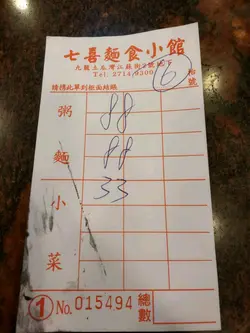 七喜麵食小館
九龍土瓜灣江蘇街2號地下
Tel: 2714 9300
⑥ 枱號
請携此單到柜面結賬
粥 88
麵 88
小 33
菜
① No. 015494 總數